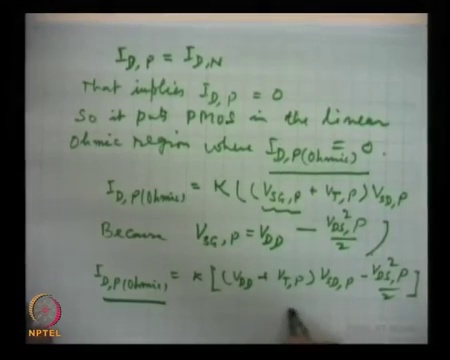 I_D,P = I_D,N
That implies I_D,P = 0
So it puts PMOS in the linear
Ohmic region where I_D,P(Ohmic) = 0.
I_D,P(Ohmic) = K ( (V_SG,P + V_T,P) V_SD,P
Because V_SG,P = V_DD - V_DS,P²/2 )
I_D,P(Ohmic) = K [ (V_DD + V_T,P) V_SD,P - V_DS,P²/2 ]
NPTEL